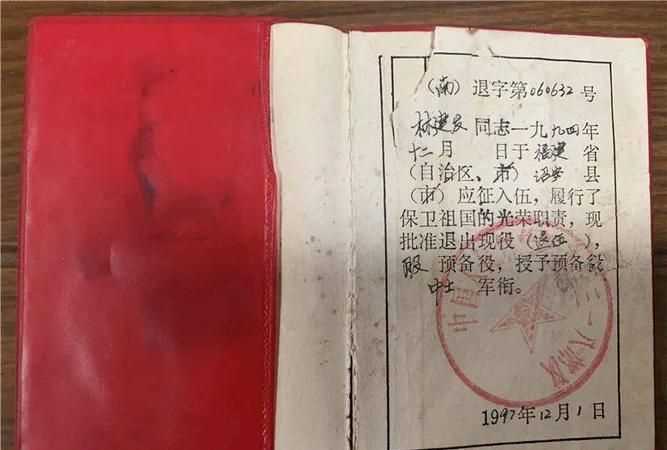 （南）退字第060632号
林建发同志一九九四年
十二月　　日于福建省
（自治区、市）诏安县
（市）应征入伍，履行了
保卫祖国的光荣职责，现
批准退出现役（退伍），
服预备役，授予预备役
中士　军衔。
中国
1997年12月1日